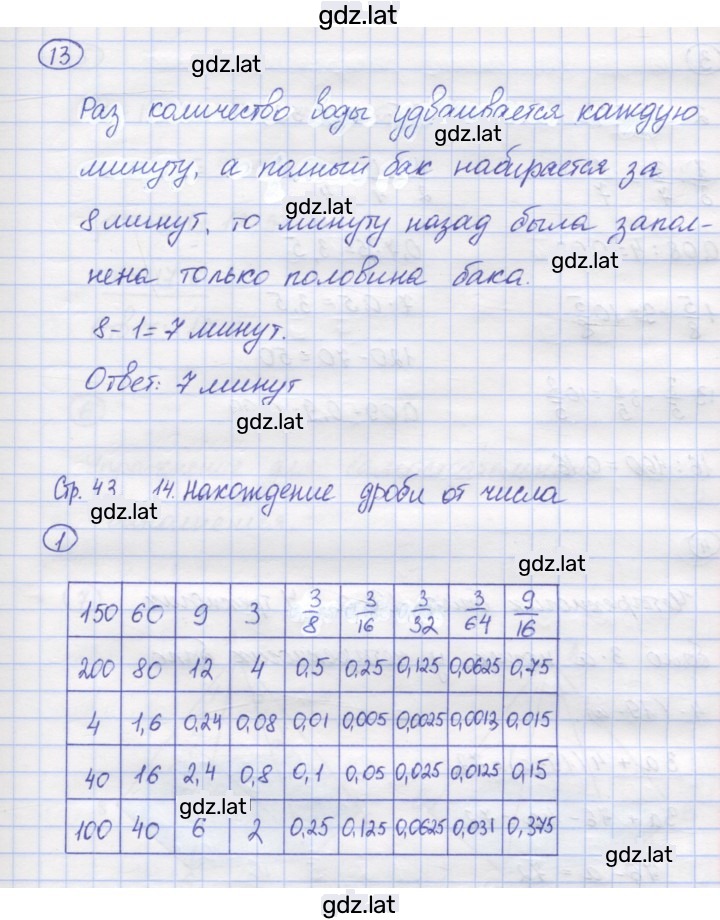 gdz.lat
13
gdz.lat
Раз количество воды удваивается каждую
gdz.lat
минуту, а полный бак набирается за
gdz.lat
8 минут, то минуту назад была запол-
gdz.lat
нена только половина бака.
8-1=7 минут.
Ответ: 7 минут
gdz.lat
Стр. 43 14. Нахождение дроби от числа
gdz.lat
1
gdz.lat
150 60 9 3 3/8 3/16 3/32 3/64 9/16
200 80 12 4 0,5 0,25 0,125 0,0625 0,75
4 1,6 0,24 0,08 0,01 0,005 0,0025 0,0013 0,015
40 16 2,4 0,8 0,1 0,05 0,025 0,0125 0,15
gdz.lat
100 40 6 2 0,25 0,125 0,0625 0,031 0,375
gdz.lat
gdz.lat